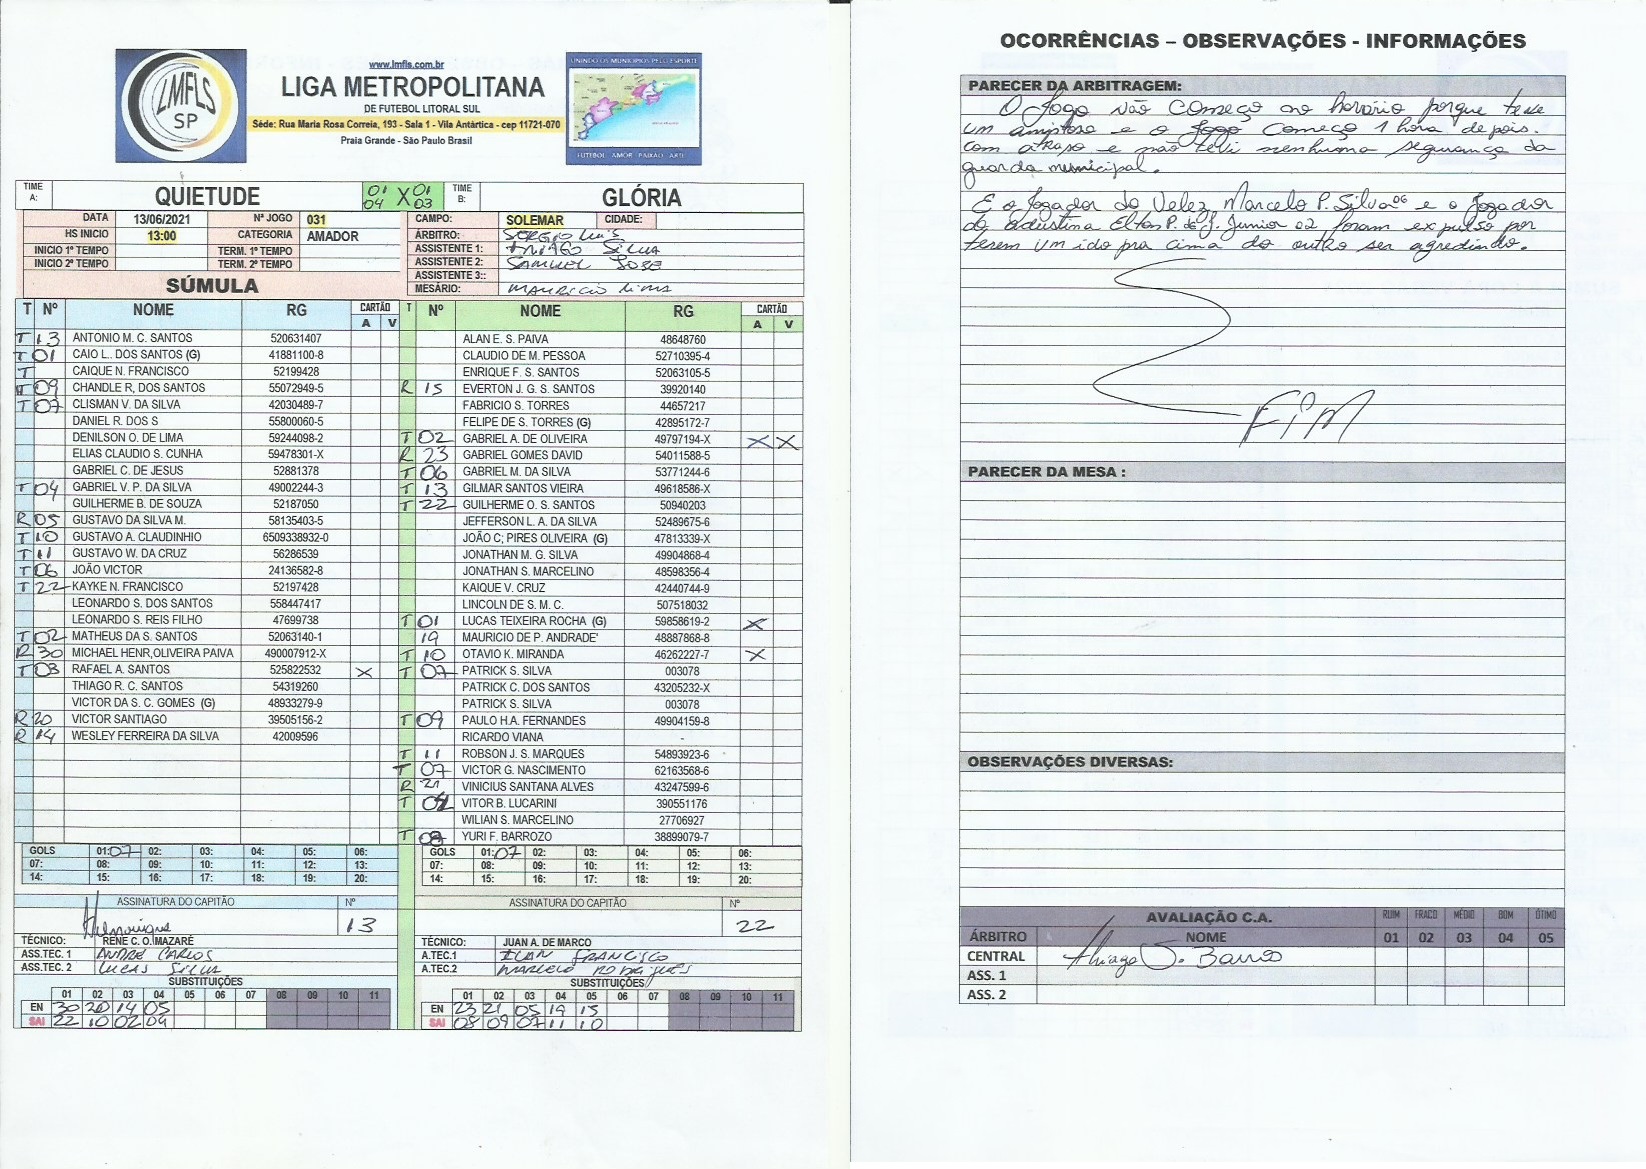 www.lmfls.com.br
LIGA METROPOLITANA
DE FUTEBOL LITORAL SUL
Séde: Rua Maria Rosa Correia, 193 - Sala 1 - Vila Antártica - cep 11721-070
Praia Grande - São Paulo Brasil
LMFLS
SP
UNINDO OS MUNICIPIOS PELO ESPORTE
FUTEBOL AMOR PAIXÃO ARTE
TIME A: QUIETUDE 01 04 X 01 03 TIME B: GLÓRIA
DATA 13/06/2021 Nº JOGO 031
HS INICIO 13:00 CATEGORIA AMADOR
INICIO 1º TEMPO TERM. 1º TEMPO
INICIO 2º TEMPO TERM. 2º TEMPO
CAMPO: SOLEMAR CIDADE:
ÁRBITRO: SERGIO Luis
ASSISTENTE 1: tHIAGO SILVA
ASSISTENTE 2: SAMUEL JOSE
ASSISTENTE 3::
MESÁRIO: MAURICIO lima
SÚMULA
T Nº NOME RG CARTÃO A V
T 13 ANTONIO M. C. SANTOS 520631407
T 01 CAIO L. DOS SANTOS (G) 41881100-8
T CAIQUE N. FRANCISCO 52199428
T 09 CHANDLE R, DOS SANTOS 55072949-5
T 07 CLISMAN V. DA SILVA 42030489-7
DANIEL R. DOS S 55800060-5
DENILSON O. DE LIMA 59244098-2
ELIAS CLAUDIO S. CUNHA 59478301-X
GABRIEL C. DE JESUS 52881378
T 04 GABRIEL V. P. DA SILVA 49002244-3
GUILHERME B. DE SOUZA 52187050
R 05 GUSTAVO DA SILVA M. 58135403-5
T 10 GUSTAVO A. CLAUDINHIO 6509338932-0
T 11 GUSTAVO W. DA CRUZ 56286539
T 06 JOÃO VICTOR 24136582-8
T 22 KAYKE N. FRANCISCO 52197428
LEONARDO S. DOS SANTOS 558447417
LEONARDO S. REIS FILHO 47699738
T 02 MATHEUS DA S. SANTOS 52063140-1
R 30 MICHAEL HENR,OLIVEIRA PAIVA 490007912-X
T 03 RAFAEL A. SANTOS 525822532 X
THIAGO R. C. SANTOS 54319260
VICTOR DA S. C. GOMES (G) 48933279-9
R 20 VICTOR SANTIAGO 39505156-2
R 14 WESLEY FERREIRA DA SILVA 42009596
T Nº NOME RG CARTÃO A V
ALAN E. S. PAIVA 48648760
CLAUDIO DE M. PESSOA 52710395-4
ENRIQUE F. S. SANTOS 52063105-5
R 15 EVERTON J. G. S. SANTOS 39920140
FABRICIO S. TORRES 44657217
FELIPE DE S. TORRES (G) 42895172-7
T 02 GABRIEL A. DE OLIVEIRA 49797194-X X X
R 23 GABRIEL GOMES DAVID 54011588-5
T 06 GABRIEL M. DA SILVA 53771244-6
T 13 GILMAR SANTOS VIEIRA 49618586-X
T 22 GUILHERME O. S. SANTOS 50940203
JEFFERSON L. A. DA SILVA 52489675-6
JOÃO C; PIRES OLIVEIRA (G) 47813339-X
JONATHAN M. G. SILVA 49904868-4
JONATHAN S. MARCELINO 48598356-4
KAIQUE V. CRUZ 42440744-9
LINCOLN DE S. M. C. 507518032
T 01 LUCAS TEIXEIRA ROCHA (G) 59858619-2 X
19 MAURICIO DE P. ANDRADE' 48887868-8
T 10 OTAVIO K. MIRANDA 46262227-7 X
T 07 PATRICK S. SILVA 003078
PATRICK C. DOS SANTOS 43205232-X
PATRICK S. SILVA 003078
T 09 PAULO H.A. FERNANDES 49904159-8
RICARDO VIANA -
T 11 ROBSON J. S. MARQUES 54893923-6
T 07 VICTOR G. NASCIMENTO 62163568-6
R 21 VINICIUS SANTANA ALVES 43247599-6
T VITOR B. LUCARINI 390551176
WILIAN S. MARCELINO 27706927
T YURI F. BARROZO 38899079-7
GOLS 01:07 02: 03: 04: 05: 06:
07: 08: 09: 10: 11: 12: 13:
14: 15: 16: 17: 18: 19: 20:
GOLS 01:07 02: 03: 04: 05: 06:
07: 08: 09: 10: 11: 12: 13:
14: 15: 16: 17: 18: 19: 20:
ASSINATURA DO CAPITÃO Nº
Henrique 13
ASSINATURA DO CAPITÃO Nº
22
TÉCNICO: RENE C. O. MAZARÉ
ASS.TEC. 1 ANDRE CARLOS
ASS.TEC. 2 LUCAS SILVA
TÉCNICO: JUAN A. DE MARCO
A.TEC.1 ILAN FRANCISCO
A.TEC.2 MARCELO RODRIGUES
SUBSTITUIÇÕES
01 02 03 04 05 06 07 08 09 10 11
EN 30 20 14 05
SAI 22 10 02 04
SUBSTITUIÇÕES
01 02 03 04 05 06 07 08 09 10 11
EN 23 21 05 19 15
SAI 08 09 07 11 10
OCORRÊNCIAS – OBSERVAÇÕES - INFORMAÇÕES
PARECER DA ARBITRAGEM:
O Jogo não começo no horario porque teve
um amistoso e o Jogo começo 1 hora depois.
com atraso e não tevi nenhuma segurança da
guarda municipal.
E o Jogador do Velez Marcelo P. Silva 06 e o Jogador
do adustina Elton P. de J. Junior 02 foram expulso por
terem um ido pra cima do outro ser agredindo.
FiM
PARECER DA MESA :
OBSERVAÇÕES DIVERSAS:
AVALIAÇÃO C.A. RUIM FRACO MÉDIO BOM ÓTIMO
ÁRBITRO NOME 01 02 03 04 05
CENTRAL Thiago J. Barros
ASS. 1
ASS. 2